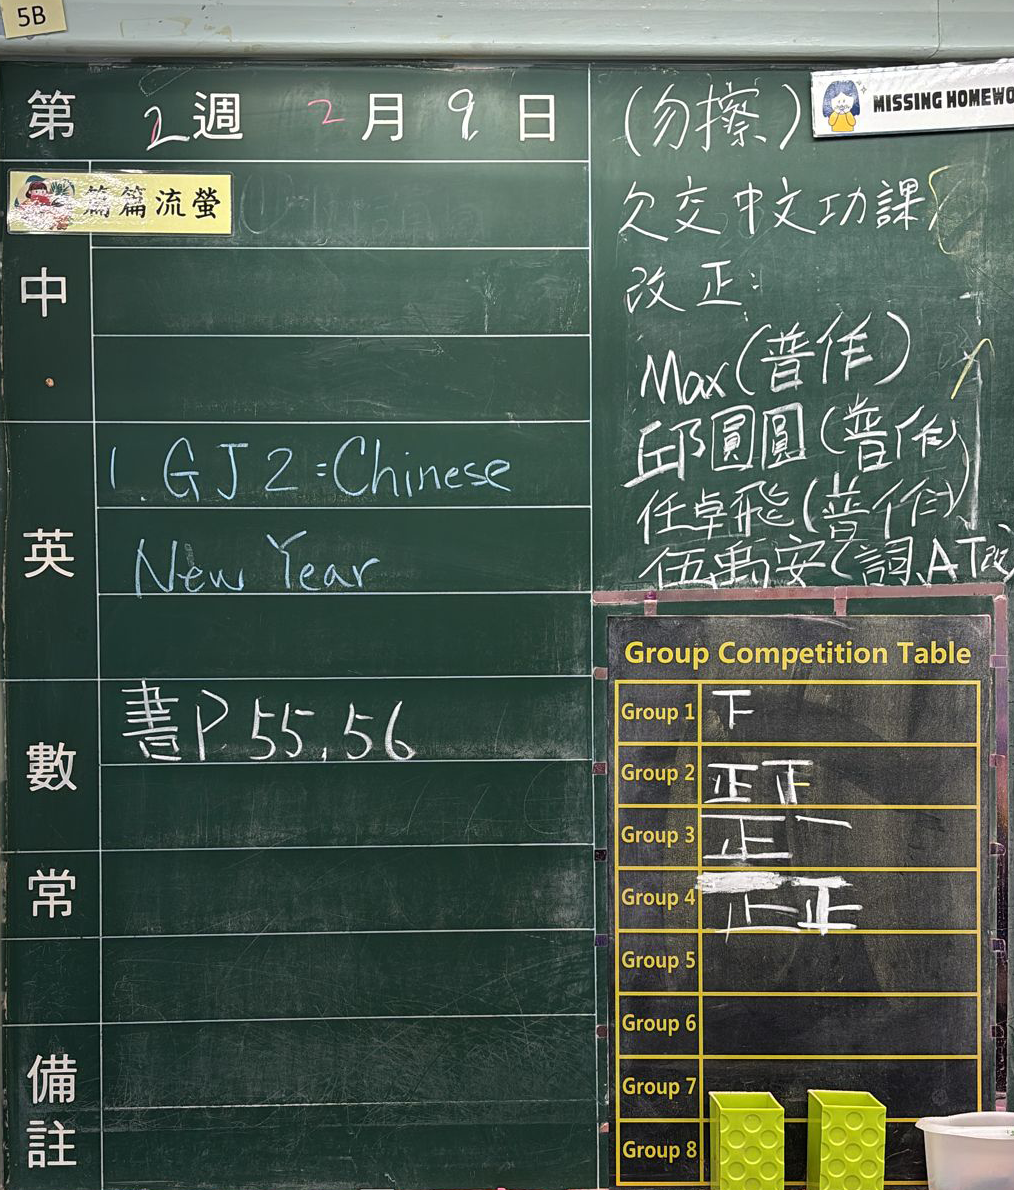 5B
第2週 2月9日
篇篇流螢
中
英
1. GJ2:Chinese
New Year
數
書P.55,56
常
備
註
(勿擦)
MISSING HOMEWO
欠交中文功課/
改正:
Max(普作)
邱圓圓(普作)
任卓飛(普作)
伍禹安(詞,AT改)
Group Competition Table
Group 1 下
Group 2 正正
Group 3 正一
Group 4 正正
Group 5
Group 6
Group 7
Group 8